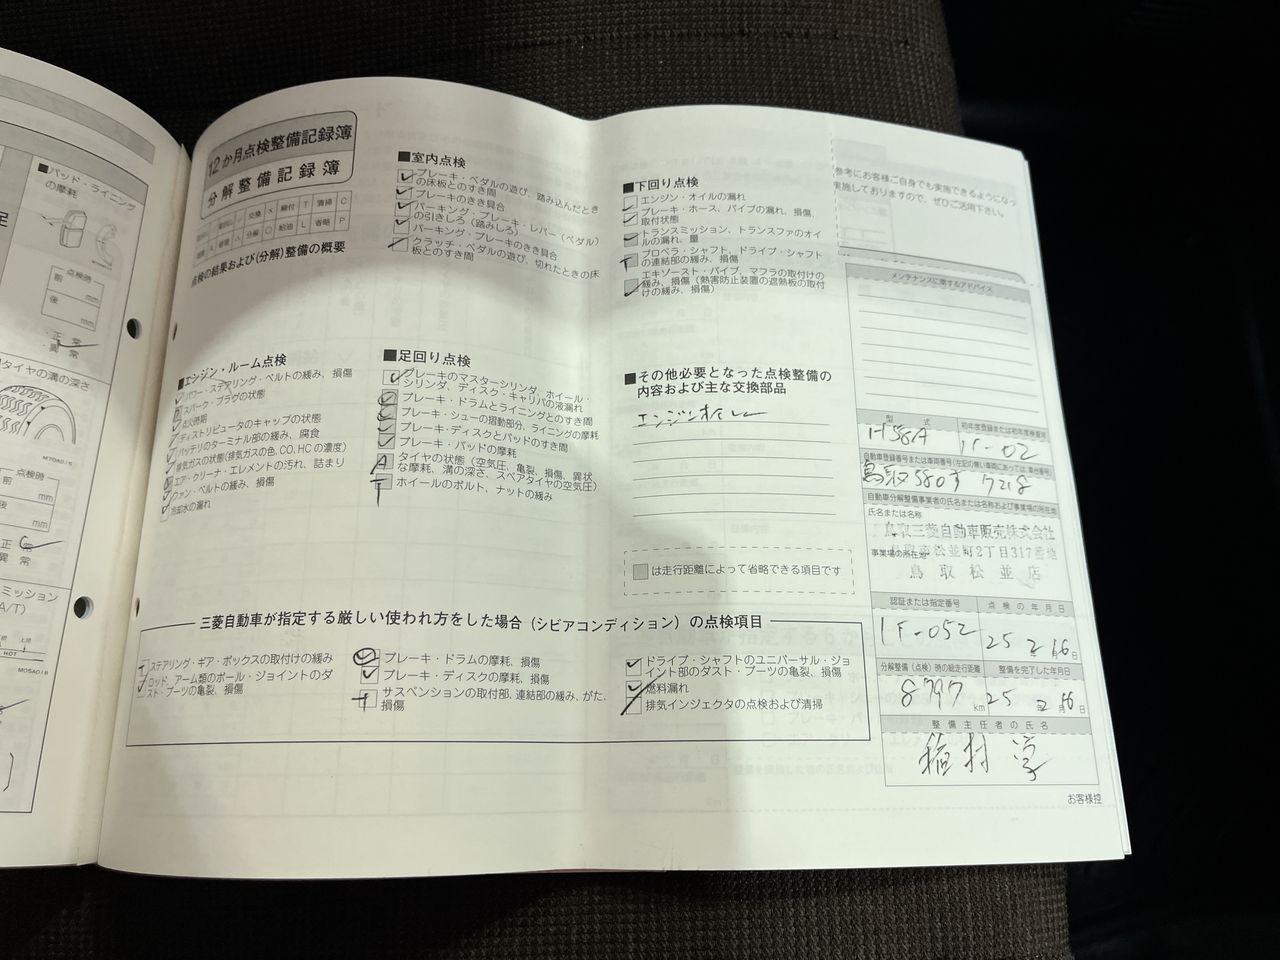 パッド・ライニング
の摩耗
点検時
前 mm
後 mm
・正 常
・異 常
タイヤの溝の深さ
M70A015
点検時
前 mm
後 mm
正 常
異 常
ミッション
(A/T)
HOT
M05A018
12か月点検整備記録簿
分解整備記録簿
交換 × 締付 T 清掃 C
分解 ○ 給油 L 省略 P
点検の結果および(分解)整備の概要
■エンジン・ルーム点検
パワー・ステアリング・ベルトの緩み、損傷
スパーク・プラグの状態
点火時期
ディストリビュータのキャップの状態
バッテリのターミナル部の緩み、腐食
排気ガスの状態(排気ガスの色、CO、HCの濃度)
エア・クリーナ・エレメントの汚れ、詰まり
ファン・ベルトの緩み、損傷
冷却水の漏れ
■室内点検
ブレーキ・ペダルの遊び、踏み込んだとき
の床板とのすき間
ブレーキのきき具合
パーキング・ブレーキ・レバー(ペダル)
の引きしろ(踏みしろ)
パーキング・ブレーキのきき具合
クラッチ・ペダルの遊び、切れたときの床
板とのすき間
■足回り点検
ブレーキのマスターシリンダ、ホイール・
シリンダ、ディスク・キャリパの液漏れ
ブレーキ・ドラムとライニングとのすき間
ブレーキ・シューの摺動部分、ライニングの摩耗
ブレーキ・ディスクとパッドのすき間
ブレーキ・パッドの摩耗
タイヤの状態(空気圧、亀裂、損傷、異状
な摩耗、溝の深さ、スペアタイヤの空気圧)
ホイールのボルト、ナットの緩み
■下回り点検
エンジン・オイルの漏れ
ブレーキ・ホース、パイプの漏れ、損傷、
取付状態
トランスミッション、トランスファのオイ
ルの漏れ、量
プロペラ・シャフト、ドライブ・シャフト
の連結部の緩み、損傷
エキゾースト・パイプ、マフラの取付けの
緩み、損傷(熱害防止装置の遮熱板の取付
けの緩み、損傷)
■その他必要となった点検整備の
内容および主な交換部品
エンジンオイル
は走行距離によって省略できる項目です
三菱自動車が指定する厳しい使われ方をした場合(シビアコンディション)の点検項目
ステアリング・ギア・ボックスの取付けの緩み
ロッド、アーム類のボール・ジョイントのダ
スト・ブーツの亀裂、損傷
ブレーキ・ドラムの摩耗、損傷
ブレーキ・ディスクの摩耗、損傷
サスペンションの取付部、連結部の緩み、がた、
損傷
ドライブ・シャフトのユニバーサル・ジョ
イント部のダスト・ブーツの亀裂、損傷
燃料漏れ
排気インジェクタの点検および清掃
参考にお客様ご自身でも実施できるようになっ
実施しておりますので、ぜひご活用下さい。
メンテナンスに関するアドバイス
型 式 初年度登録または初年度検査年
H58A 11-02
自動車登録番号または車両番号(左記の無い車両にあっては、車台番号)
鳥取580す 7218
自動車分解整備事業者の氏名または名称および事業場の所在地
氏名または名称
鳥取三菱自動車販売株式会社
事業場の所在地 鳥取市松並町2丁目317番地
鳥取松並店
認証または指定番号 点検の年月日
1F-052 25 2月16日
分解整備(点検)時の総走行距離 整備を完了した年月日
8797km 25年2月16日
整備主任者の氏名
植村 学
お客様控